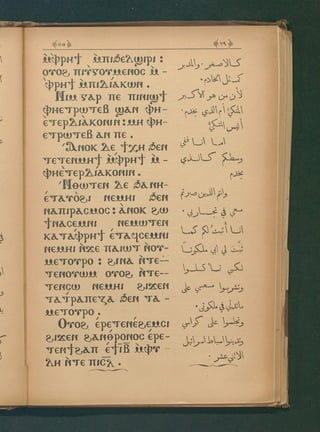 ⲙ̀ⲫⲣⲏϯ ⲙ̀ⲡⲓϧⲉⲗϣⲓⲣⲓ :
ⲟⲩⲟϩ ⲡⲓϩⲩⲅⲟⲩⲙⲉⲛⲟⲥ ⲙ̀-
ⲫⲣⲏϯ ⲙ̀ⲡⲓⲇⲓⲁⲕⲱⲛ .
Ⲛⲓⲙ ⲅⲁⲣ ⲡⲉ ⲡⲓⲛⲓϣϯ
ⲫⲏⲉⲧⲣⲱⲧⲉⲃ ϣⲁⲛ ⲫⲏ-
ⲉⲧⲉⲣⲇⲓⲁⲕⲟⲛⲓⲛ : ⲙⲏ ⲫⲏ-
ⲉⲧⲣⲱⲧⲉⲃ ⲁⲛ ⲡⲉ .
Ⲁⲛⲟⲕ ⲇⲉ ϯⲭⲏ ϧⲉⲛ
ⲧⲉⲧⲉⲛⲙⲏϯ ⲙ̀ⲫⲣⲏϯ ⲙ̀-
ⲫⲏⲉⲧⲉⲣⲇⲓⲁⲕⲟⲛⲓⲛ .
Ⲛⲑⲱⲧⲉⲛ ⲇⲉ ϧⲁ ⲛⲏ-
ⲉⲧⲁⲩⲟ̀ϩⲓ ⲛⲉⲙⲏⲓ ϧⲉⲛ
ⲛⲁⲡⲓⲣⲁⲥⲙⲟⲥ : ⲁⲛⲟⲕ ϩⲱ
ϯⲛⲁⲥⲉⲙⲛⲓ ⲛⲉⲙⲱⲧⲉⲛ
ⲕⲁⲧⲁⲫⲣⲏϯ ⲉⲧⲁϥⲥⲉⲙⲛⲓ
ⲛⲉⲙⲏⲓ ⲛ̀ϫⲉ ⲡⲁⲓⲱⲧ ⲛ̀ⲟⲩ-
ⲙⲉⲧⲟⲩⲣⲟ : ϩⲓⲛⲁ ⲛ̀ⲧⲉ-
ⲧⲉⲛⲟⲩⲱⲙ ⲟⲩⲟϩ ⲛ̀ⲧⲉ-
ⲧⲉⲛⲥⲱ ⲛⲉⲙⲏⲓ ϩⲓϫⲉⲛ
ⲧⲁⲧⲣⲁⲡⲉⲍⲁ ϧⲉⲛ ⲧⲁ-
ⲙⲉⲧⲟⲩⲣⲟ .
Ⲟⲩⲟϩ ⲉⲣⲉⲧⲉⲛⲉ̀ϩⲉⲙⲥⲓ
ϩⲓϫⲉⲛ ϩⲁⲛⲑⲣⲟⲛⲟⲥ ⲉⲣⲉ-
ⲧⲉⲛϯϩⲁⲡ ⲉ̀ϯⲓ̅ⲃ̅ ⲙ̀ⲫⲩ-
ⲗⲏ ⲛ̀ⲧⲉ ⲡⲓⲥ̅ⲗ̅ .
كالاصغر . والمدبر
كمثل الخادم .
لأن من هو الأكبر
المتكئ أم الذي يخدم .
أليس المتكئ
اما انا ففي
وسطكم كالذي
يخدم
وانتم الذين صبرتم
معي في تجاربي .
انا أثبت لكم كما
ثبّت لي ابي ملكوتًا
لكي تأكلوا
وتشربوا معي على
مائدتي في ملكوتي .
وتجلسوا على كراسي
وتدينوا اسباط اسرائيل
الاثني عشر .